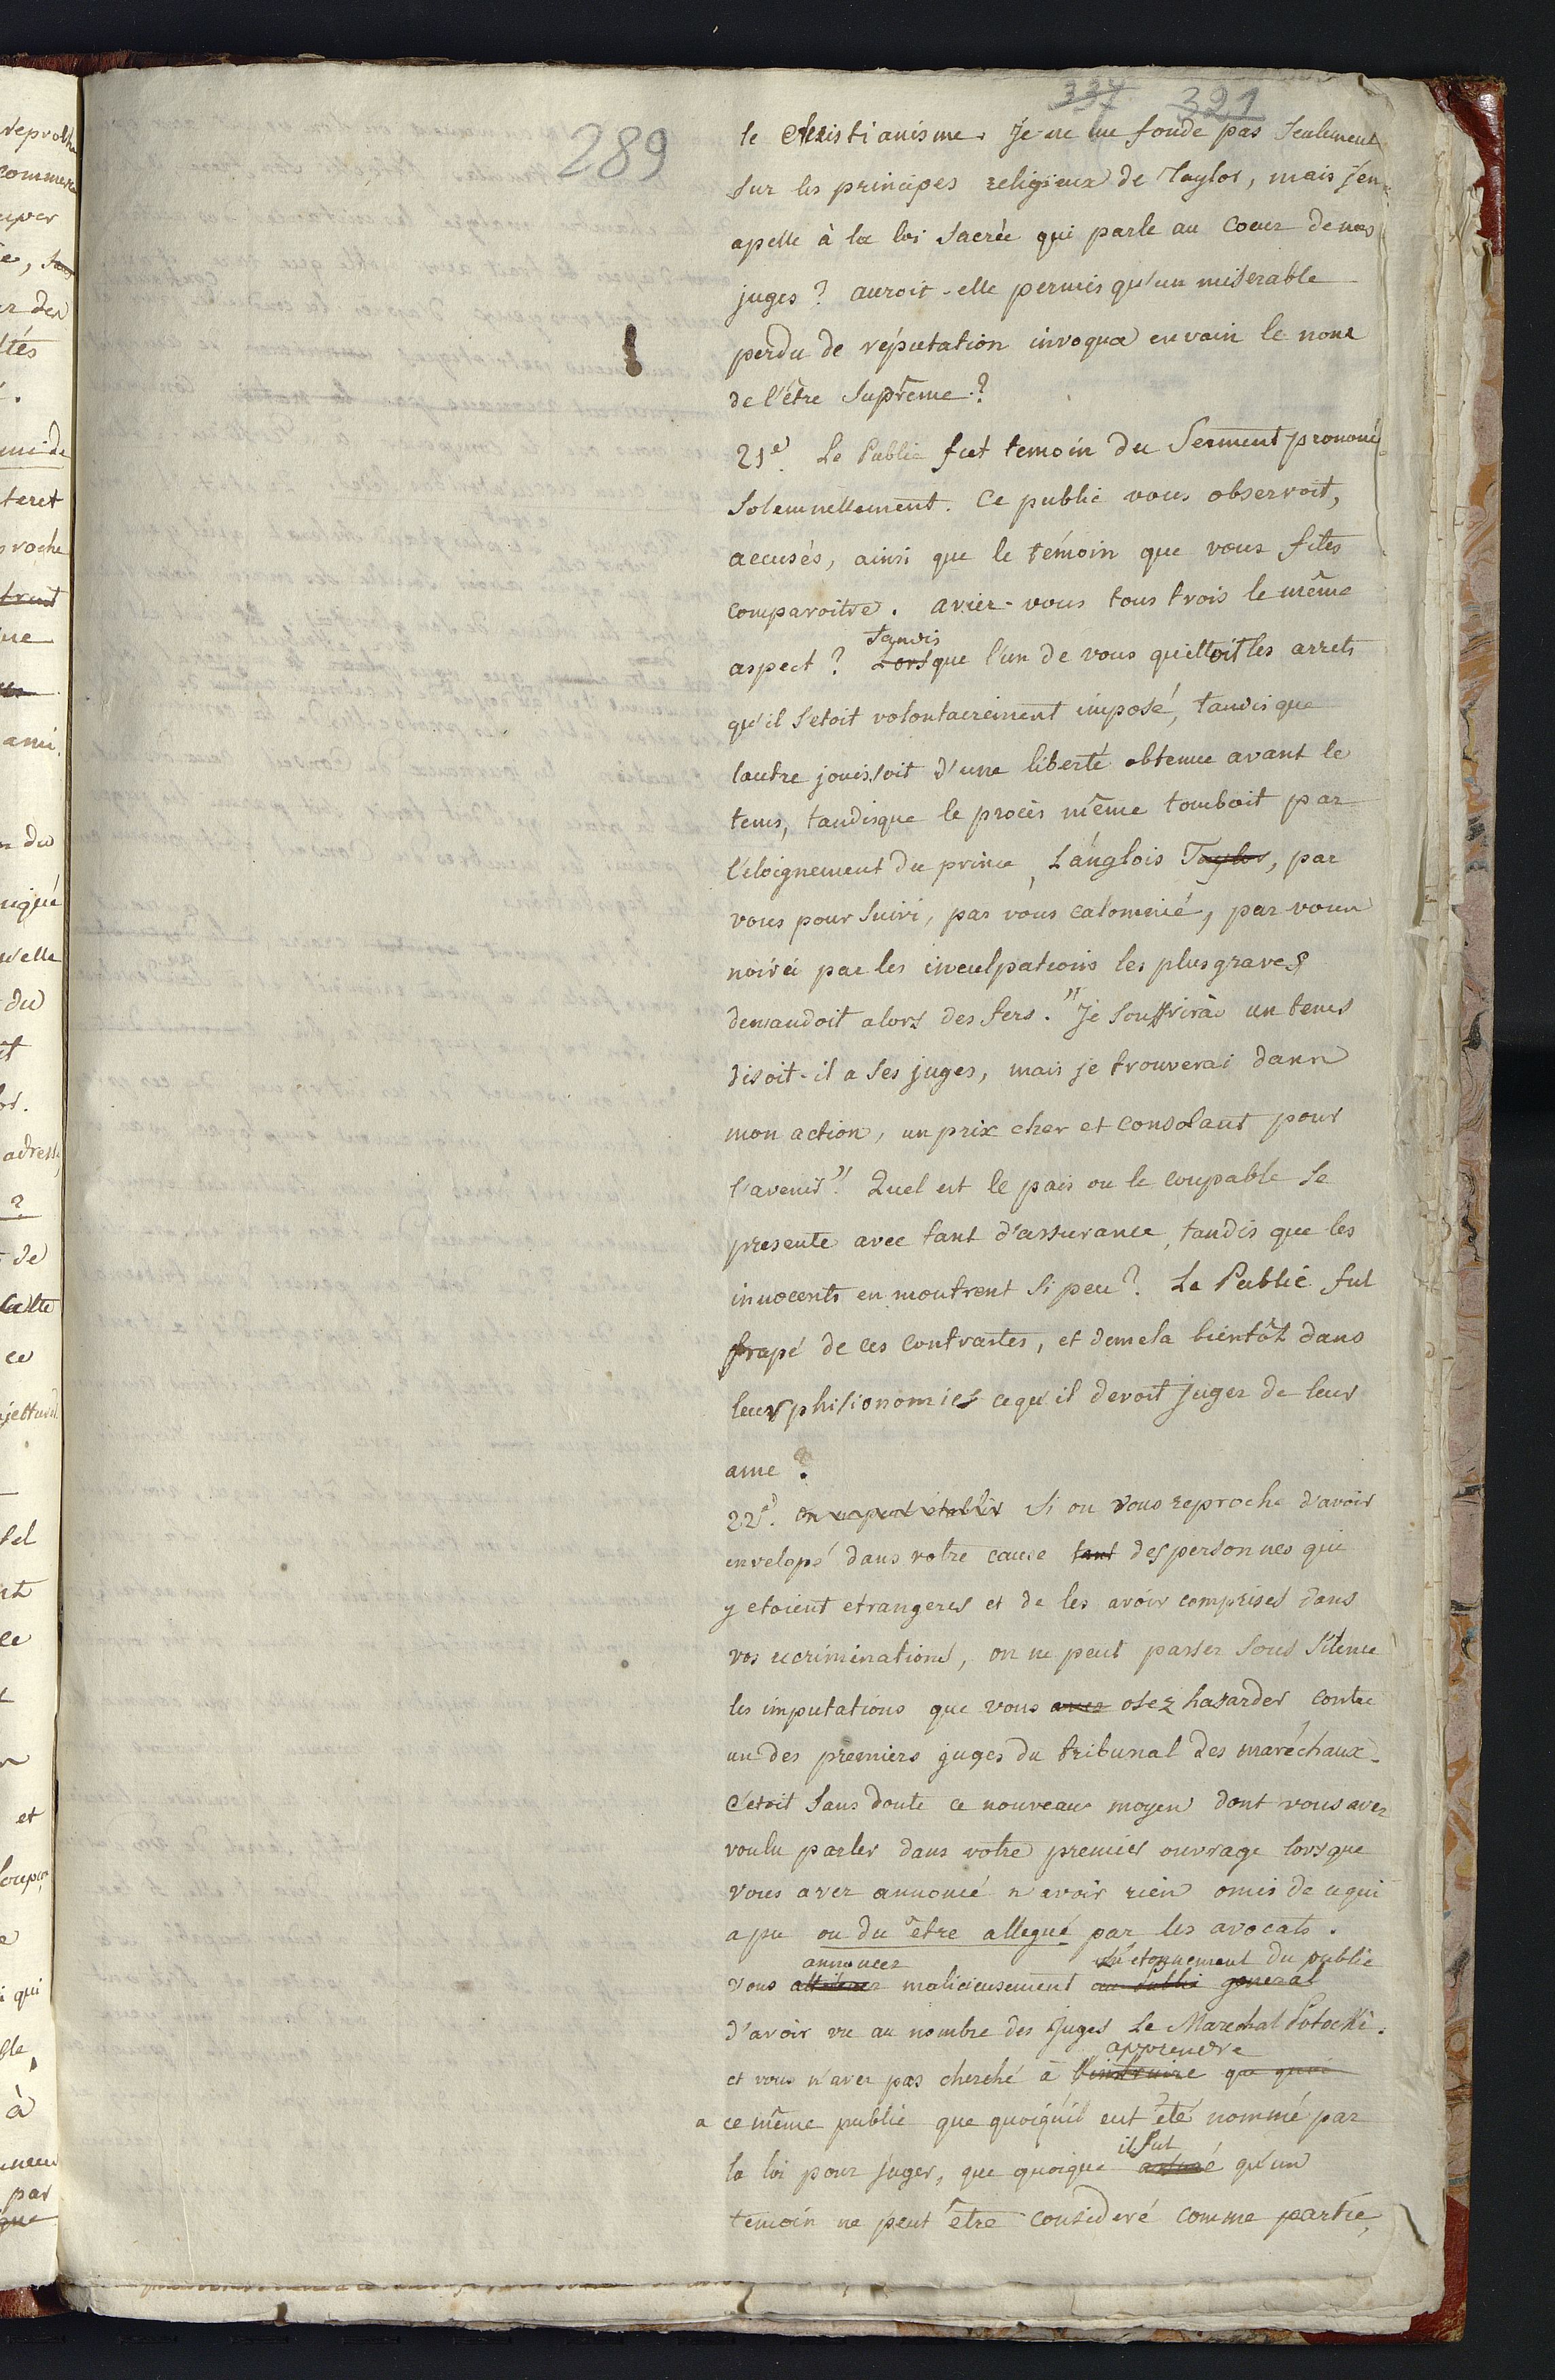 337 321
289
le Christianisme. Je ne me fonde pas seulement
sur les principes religieux de Taylor, mais j'en
apelle à la loi sacrée qui parle au coeur de nos
juges? auroit-elle permis qu'un miserable
perdu de réputation invoqua en vain le nom
de l'être suprême?
21e. Le Public fut temoin du Serment prononcé
solemnellement. Ce public vous observoit,
accusés, ainsi que le témoin que vous fites
comparoitre. aviez-vous tous trois le même
Tandis
aspect? Lorsque l'un de vous quittoit les arrets
qu'il s'etoit volontairement imposé, tandis que
lautre jouissoit d'une liberté obtenue avant le
tems, tandisque le procès même tomboit par
l'éloignement du prince, L'anglois Taylor, par
vous poursuivi, par vous calomnié, par vous
noirci par les inculpations les plus graves
demandoit alors des fers. "Je souffrirai un tems
disoit-il a ses juges, mais je trouverai dans
mon action, un prix cher et consolant pour
l'avenir". Quel est le pais ou le coupable se
presente avec tant d'assurance, tandis que les
innocents en montrent si peu? Le Public fut
frapé de ces contrastes, et demela bientôt dans
leurs phisionomies ce qu'il devoit juger de leur
ame?
22e. on ne peut établir Si on vous reproche d'avoir
envelopé dans votre cause tant des personnes qui
y etoient etrangeres et de les avoir comprises dans
vos recriminations, on ne peut passer sous silence
les imputations que vous avez osez hasarder contre
un des premiers juges du tribunal des maréchaux.
C'etoit sans doute ce nouveau moyen dont vous avez
voulu parler dans votre premier ouvrage lorsque
vous avez annoncé n'avoir rien omis de ce qui
a pu ou du être allegué par les avocats.
annoncez l'étonnement du public
vous malicieusement au public general
d'avoir vu au nombre des Juges Le Marechal Potocki.
apprendre
et vous n'avez pas cherché à l'instruire que quoi
a ce même public que quoiqu'il eut été nommé par
il fut
la loi pour juger, que quoique qu'un
temoin ne peut être consideré comme partie,